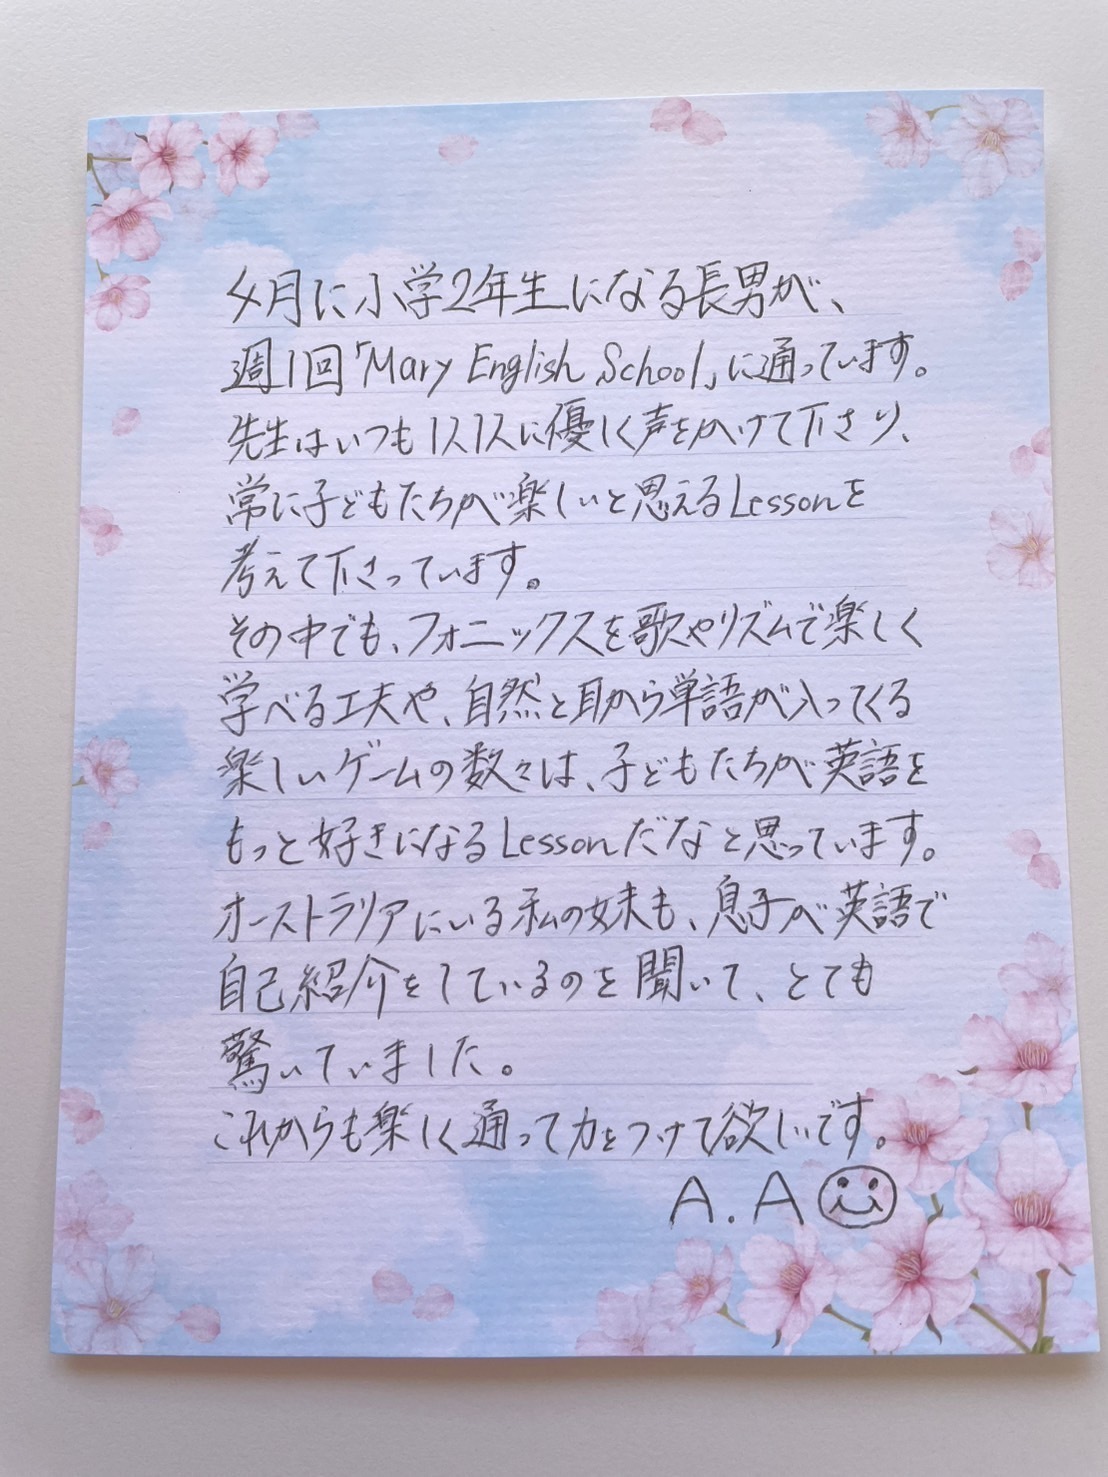 4月に小学2年生になる長男が、
週1回「Mary English School」に通っています。
先生はいつも1人1人に優しく声をかけて下さり、
常に子どもたちが楽しいと思えるLessonを
考えて下さっています。
その中でも、フォニックスを歌やリズムで楽しく
学べる工夫や、自然と耳から単語が入ってくる
楽しいゲームの数々は、子どもたちが英語を
もっと好きになるLessonだなと思っています。
オーストラリアにいる私の妹も、息子が英語で
自己紹介をしているのを聞いて、とても
驚いていました。
これからも楽しく通って力をつけて欲しいです。
A.A